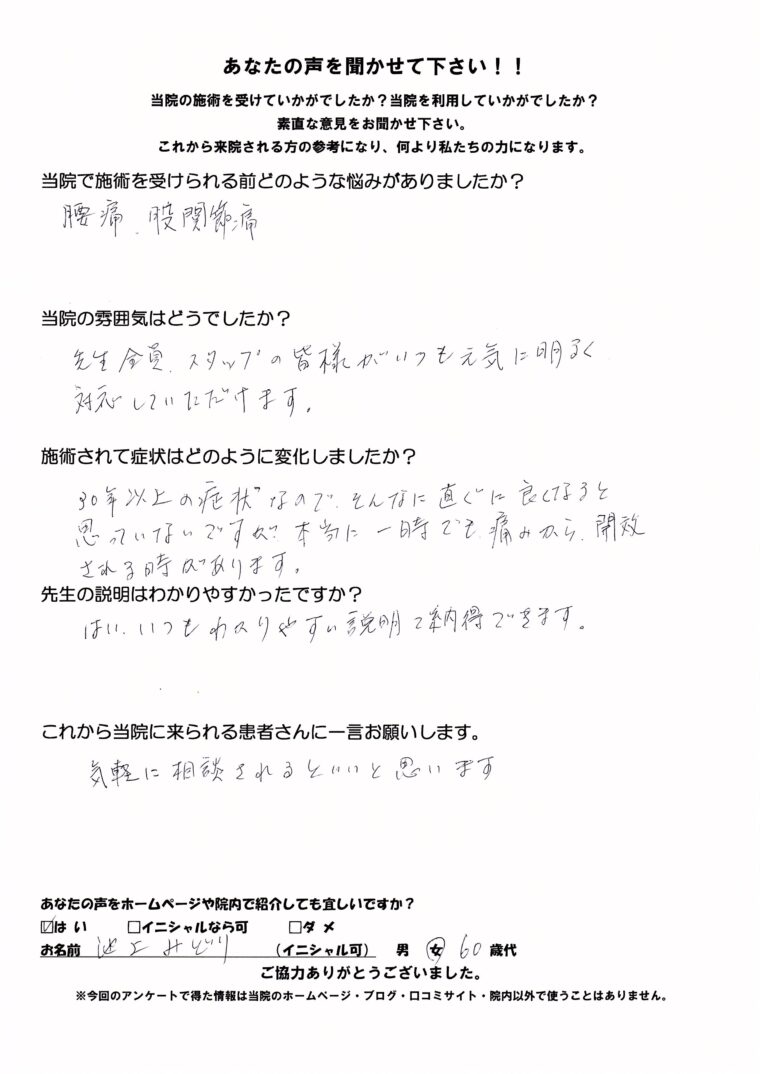 あなたの声を聞かせて下さい！！
当院の施術を受けていかがでしたか？当院を利用していかがでしたか？
素直な意見をお聞かせ下さい。
これから来院される方の参考になり、何より私たちの力になります。
当院で施術を受けられる前どのような悩みがありましたか？
腰痛、股関節痛
当院の雰囲気はどうでしたか？
先生全員、スタッフの皆様がいつも元気に明るく
対応していただけます。
施術されて症状はどのように変化しましたか？
30年以上の症状なので、そんなに直ぐに良くなると
思っていないですが、本当に一時でも、痛みから、開放
される時があります。
先生の説明はわかりやすかったですか？
はい、いつもわかりやすい説明で納得できます。
これから当院に来られる患者さんに一言お願いします。
気軽に相談されるといいと思います
あなたの声をホームページや院内で紹介しても宜しいですか？
☑はい □イニシャルなら可 □ダメ
お名前 池上みどり （イニシャル可） 男 女 60歳代
ご協力ありがとうございました。
※今回のアンケートで得た情報は当院のホームページ・ブログ・口コミサイト・院内以外で使うことはありません。